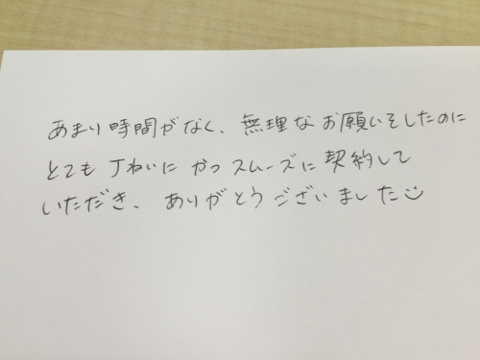 あまり時間がなく、無理なお願いをしたのに
とても丁ねいに かつスムーズに契約して
いただき、ありがとうございました